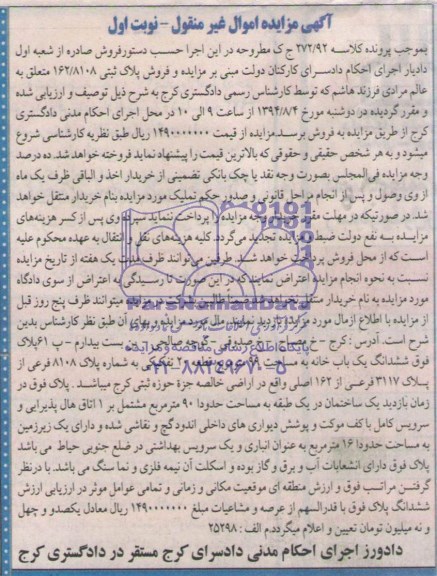 آگهی مزایده اموال غیر منقول - نوبت اول
بموجب پرونده کلاسه ۲۷۲/۹۲ ج ک مطروحه در این اجرا حسب دستور فروش صادره از شعبه اول
دادیار اجرای احکام دادسرای کارکنان دولت مبنی بر مزایده و فروش پلاک ثبتی ۱۶۲/۸۱۰۸ متعلق به
عالم مرادی فرزند هاشم که توسط کارشناس رسمی دادگستری کرج به شرح ذیل توصیف و ارزیابی شده
و مقرر گردیده در دوشنبه مورخ ۱۳۹۴/۸/۴ از ساعت ۹ الی ۱۰ در محل اجرای احکام مدنی دادگستری
کرج از طریق مزایده به فروش برسد. مزایده از قیمت ۱۴۹۰۰۰۰۰۰۰ ریال طبق نظریه کارشناسی شروع
میشود و به هر شخص حقیقی و حقوقی که بالاترین قیمت را پیشنهاد نماید فروخته خواهد شد. ده درصد
وجه مزایده فی المجلس بصورت وجه نقد یا چک بانکی تضمینی از خریدار اخذ و الباقی ظرف یک ماه
از وی وصول و پس از انجام مراحل قانونی و صدور حکم تملیک مورد مزایده بنام خریدار منتقل خواهد
شد. در صورتیکه در مهلت مقرر وجه مزایده را پرداخت ننماید سپرده وی پس از کسر هزینه‌های
مزایده به نفع دولت ضبط و مزایده تجدید می‌گردد. کلیه هزینه‌های نقل و انتقال به عهده محکوم علیه
است که از محل فروش پرداخت خواهد شد. طرفین می‌توانند ظرف مدت یک هفته از تاریخ مزایده
نسبت به نحوه انجام مزایده اعتراض نمایند که در این صورت تا رسیدگی به اعتراض از سوی دادگاه
مورد مزایده به نام خریدار منتقل نخواهد شد. طالبین شرکت در مزایده میتوانند ظرف پنج روز قبل
از مزایده با اطلاع از مال مورد مزایده بازدید نمایند. مال مورد مزایده و بهای آن طبق نظر کارشناس بدین
شرح است. آدرس: کرج - خ مصباح - خ صدوقی - کوچه صالح - بن بست بیدارم - پ ۶۱ پلاک
فوق ششدانگ یک باب خانه به مساحت مترمربع قطعه ۲ تفکیکی به شماره پلاک ۸۱۰۸ فرعی از
پلاک ۳۱۱۷ فرعی از ۱۶۲ اصلی واقع در اراضی خالصه جزء حوزه ثبتی کرج میباشد. پلاک فوق در
زمان بازدید یک ساختمان در یک طبقه به مساحت حدودا ۹۰ مترمربع مشتمل بر ۱ اتاق هال پذیرایی و
سرویس کامل با کف موکت و پوشش دیواری های داخلی اندود گچ و نقاشی شده و دارای یک زیرزمین
به مساحت حدودا ۱۶ مترمربع به عنوان انباری و یک سرویس بهداشتی در ضلع جنوبی حیاط می باشد
پلاک فوق دارای انشعابات آب و برق و گاز بوده و اسکلت آن نیمه فلزی و نما سنگ می باشد. با در نظر
گرفتن مراتب فوق و ارزش منطقه ای موقعیت مکانی و زمانی و تمامی عوامل موثر در ارزیابی ارزش
ششدانگ پلاک فوق با قدرالسهم از عرصه و مشاعیات مبلغ ۱۴۹۰۰۰۰۰۰۰ ریال معادل یکصد و چهل
و نه میلیون تومان تعیین و اعلام میگردد. م الف: ۲۵۲۹۸
دادورز اجرای احکام مدنی دادسرای کرج مستقر در دادگستری کرج
ParsNamadData
پایگاه اطلاع رسانی مناقصه و مزایده
۰۲۱-۸۸۳۴۹۶۷۰-۵